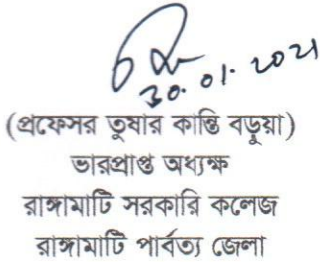 30.01.2021
(প্রফেসর তুষার কান্তি বড়ুয়া)
ভারপ্রাপ্ত অধ্যক্ষ
রাঙ্গামাটি সরকারি কলেজ
রাঙ্গামাটি পার্বত্য জেলা